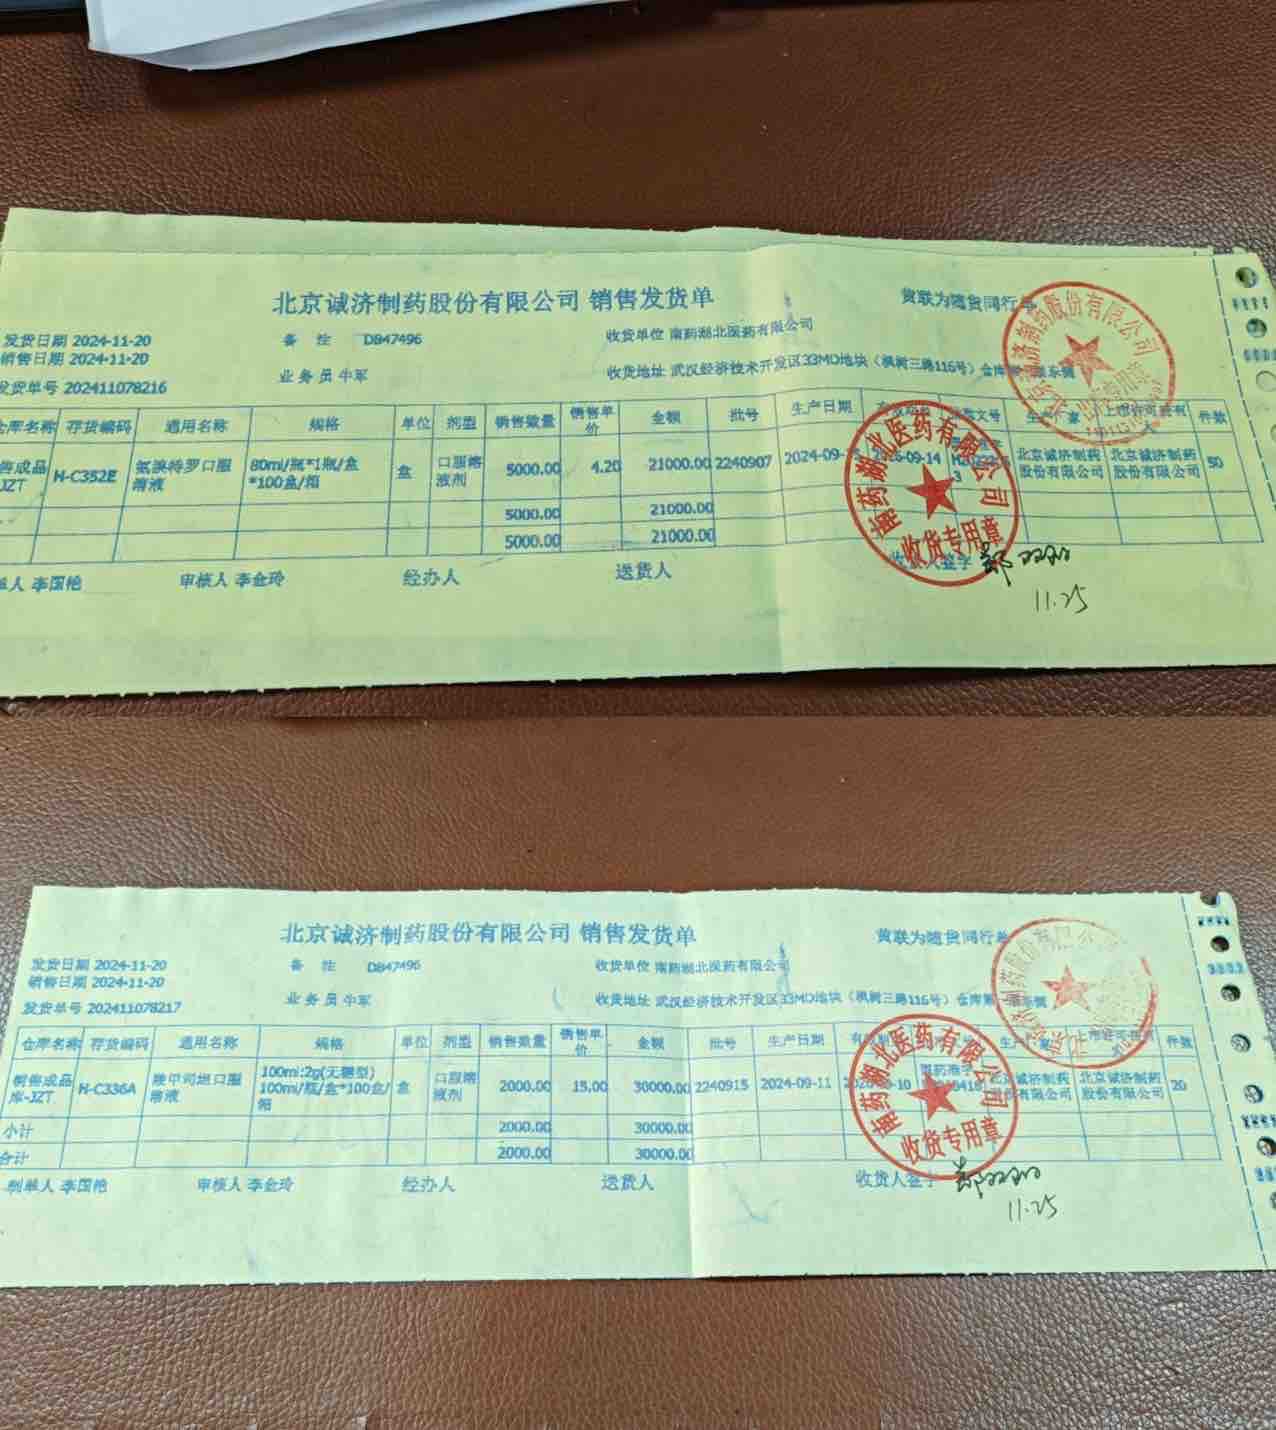 北京诚济制药股份有限公司 销售发货单
黄联为随货同行单
发货日期 2024-11-20
备 注 DB47496
收货单位 南药湖北医药有限公司
销售日期 2024-11-20
业务员 牛军
收货地址 武汉经济技术开发区33MD地块（枫树三路116号）仓库
发货单号 202411078216
仓库名称 存货编码 通用名称 规格 单位 剂型 销售数量 销售单价 金额 批号 生产日期 件数
售成品 JZT H-C352E 氨溴特罗口服溶液 80ml/瓶*1瓶/盒*100盒/箱 盒 口服溶液剂 5000.00 4.20 21000.00 2240907 2024-09- -09-14 北京诚济制药股份有限公司 北京诚济制药股份有限公司 50
5000.00 21000.00
5000.00 21000.00
单人 李国艳 审核人 李金玲 经办人 送货人 签字
11.25
南药湖北医药有限公司
收货专用章
北京诚济制药股份有限公司 销售发货单
黄联为随货同行单
发货日期 2024-11-20
备 注 DB47496
收货单位 南药湖北医药有限公司
销售日期 2024-11-20
业务员 牛军
收货地址 武汉经济技术开发区33MD地块（枫树三路116号）仓库
发货单号 202411078217
仓库名称 存货编码 通用名称 规格 单位 剂型 销售数量 销售单价 金额 批号 生产日期 件数
销售成品库-JZT H-C336A 羧甲司坦口服溶液 100ml:2g(无糖型) 100ml/瓶/盒*100盒/箱 盒 口服溶液剂 2000.00 15.00 30000.00 2240915 2024-09-11 国药准字 北京诚济制药股份有限公司 北京诚济制药股份有限公司 20
小计 2000.00 30000.00
合计 2000.00 30000.00
制单人 李国艳 审核人 李金玲 经办人 送货人 收货人签字
11.25
南药湖北医药有限公司
收货专用章